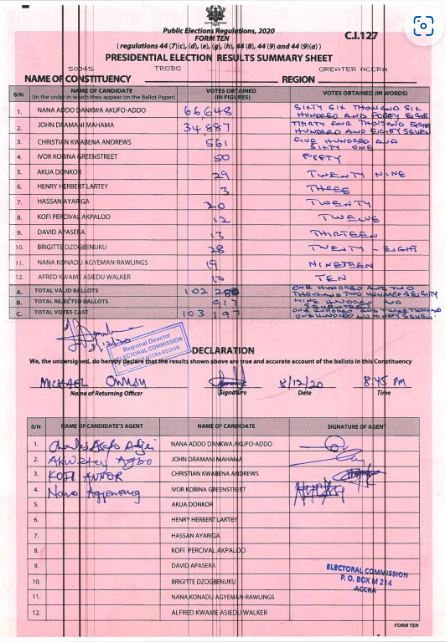 Public Elections Regulations, 2020
FORM TEN
C.I.127
(regulations 44 (7)(c), (d), (e), (g), (h), 44 (8), 44 (9) and 44 (9)(a))
PRESIDENTIAL ELECTION RESULTS SUMMARY SHEET
S0045 TROBO GREATER ACCRA
NAME OF CONSTITUENCY REGION
S/N NAME OF CANDIDATE VOTES OBTAINED VOTES OBTAINED (IN WORDS)
(In the order in which they appear on the Ballot Paper) (IN FIGURES)
1. NANA ADDO DANKWA AKUFO-ADDO 66648 SIXTY SIX THOUSAND SIX
HUNDRED AND FORTY EIGHT
2. JOHN DRAMANI MAHAMA 34887 THIRTY FOUR THOUSAND EIGHT
HUNDRED AND EIGHTY SEVEN
3. CHRISTIAN KWABENA ANDREWS 561 FIVE HUNDRED AND
SIXTY ONE
4. IVOR KOBINA GREENSTREET 50 FIFTY
5. AKUA DONKOR 29 TWENTY NINE
6. HENRY HERBERT LARTEY 3 THREE
7. HASSAN AYARIGA 20 TWENTY
8. KOFI PERCIVAL AKPALOO 12 TWELVE
9. DAVID APASERA 13 THIRTEEN
10. BRIGITTE DZOGBENUKU 28 TWENTY-EIGHT
11. NANA KONADU AGYEMAN-RAWLINGS 19 NINETEEN
12. ALFRED KWAME ASIEDU WALKER 10 TEN
A. TOTAL VALID BALLOTS 102 280 ONE HUNDRED AND TWO
THOUSAND TWO HUNDRED & EIGHTY
B. TOTAL REJECTED BALLOTS 917 NINE HUNDRED AND
SEVENTEEN
C. TOTAL VOTES CAST 103 197 ONE HUNDRED AND THREE THOUSAND
ONE HUNDRED AND NINETY SEVEN
8/12/20
Regional Director
ELECTORAL COMMISSION
DECLARATION
We, the undersigned, do hereby declare that the results shown above are true and accurate account of the ballots in this Constituency
MICHAEL 8/12/20 8:45 PM
Name of Returning Officer Signature Date Time
S/N NAME OF CANDIDATE'S AGENT NAME OF CANDIDATE SIGNATURE OF AGENT
1. NANA ADDO DANKWA AKUFO-ADDO
2. JOHN DRAMANI MAHAMA
3. KOFI CHRISTIAN KWABENA ANDREWS
4. Nana Agyemang IVOR KOBINA GREENSTREET
5. AKUA DONKOR
6. HENRY HERBERT LARTEY
7. HASSAN AYARIGA
8. KOFI PERCIVAL AKPALOO
9. DAVID APASERA
10. BRIGITTE DZOGBENUKU
11. NANA KONADU AGYEMAN-RAWLINGS
12. ALFRED KWAME ASIEDU WALKER
ELECTORAL COMMISSION
P. O. BOX M 214
ACCRA
FORM TEN